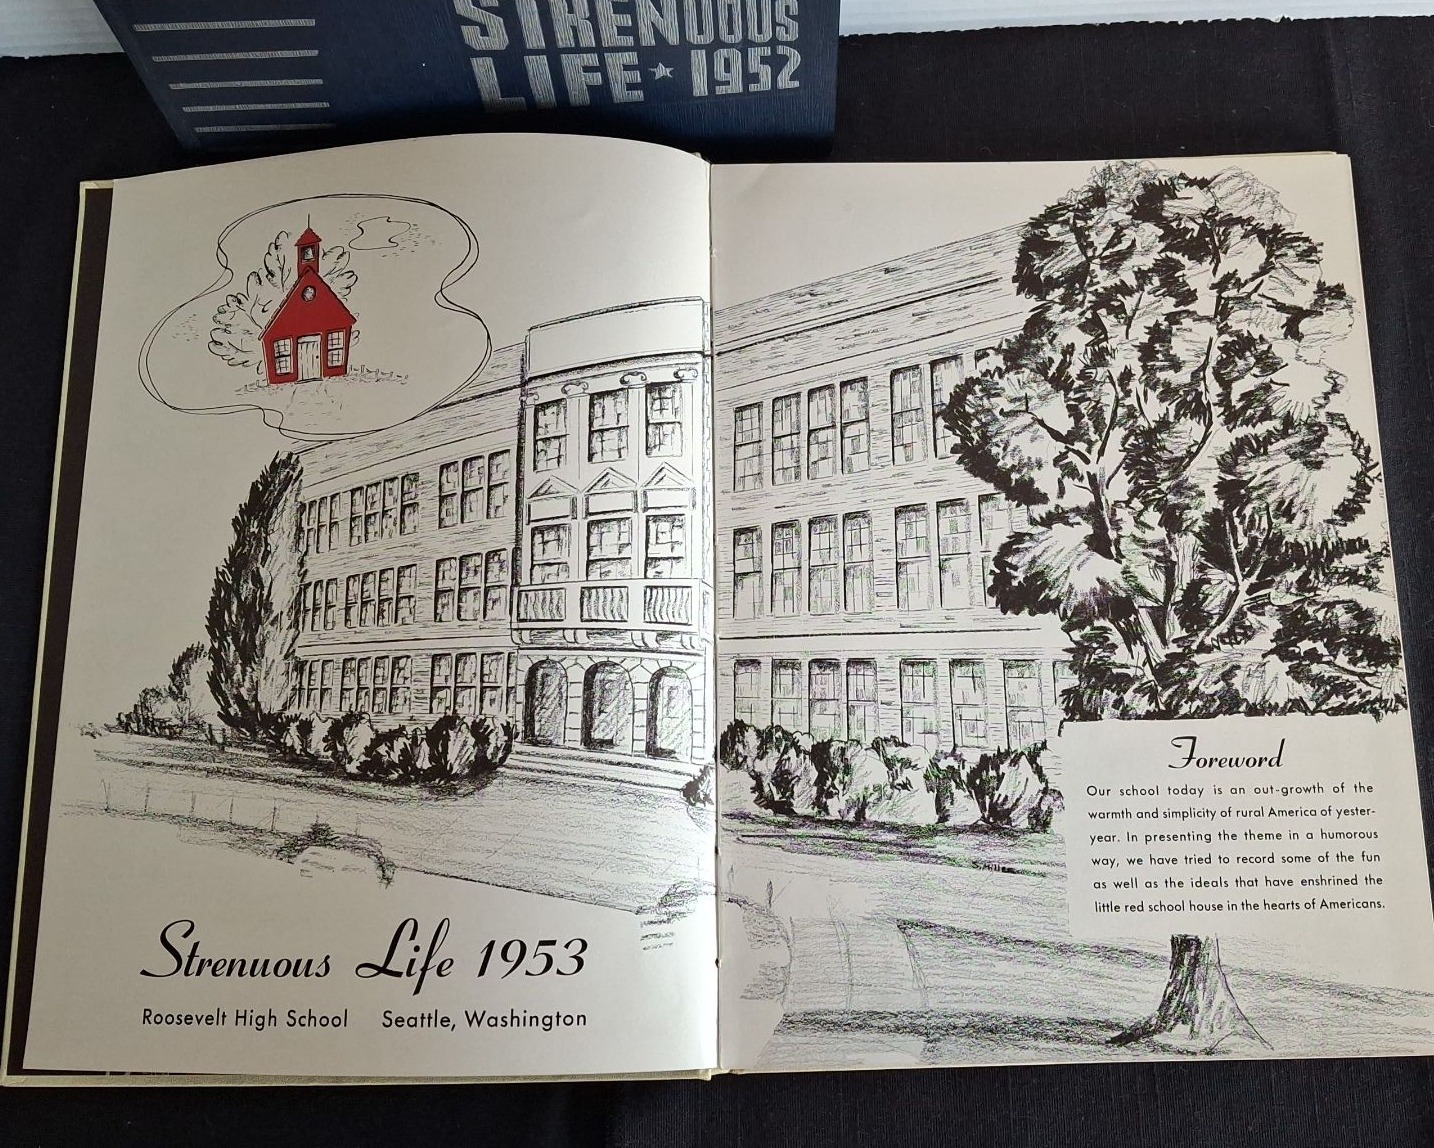 STRENUOUS
LIFE ★ 1952
Strenuous Life 1953
Roosevelt High School Seattle, Washington
Foreword
Our school today is an out-growth of the
warmth and simplicity of rural America of yester-
year. In presenting the theme in a humorous
way, we have tried to record some of the fun
as well as the ideals that have enshrined the
little red school house in the hearts of Americans.